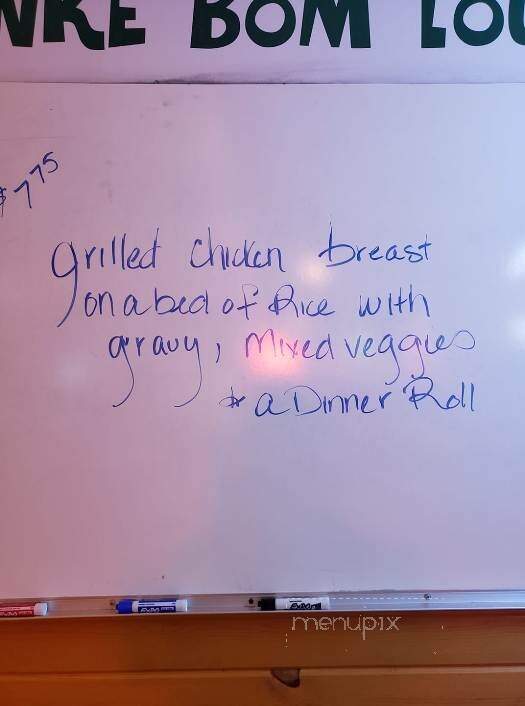 NKE BOM LOU
$7.75
grilled chicken breast
on a bed of Rice with
gravy, Mixed veggies
& a Dinner Roll
menupix